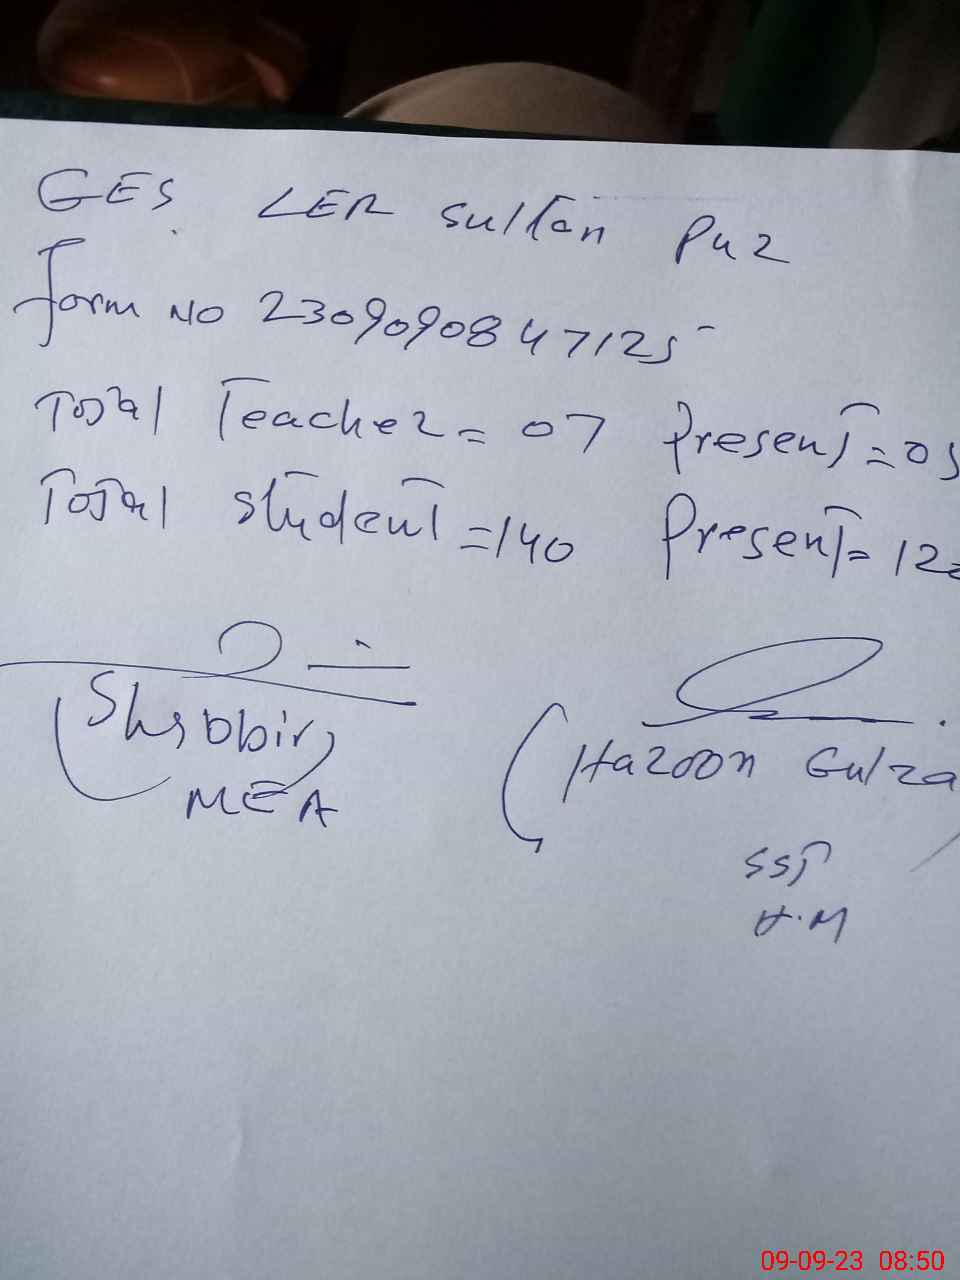 GES LER Sultan Pur
Form No 2309090847125
Total Teacher = 07 Present = 05
Total student = 140 Present = 12
(Shabbir)
MEA
(Haroon Gulza
SST
H.M
09-09-23 08:50